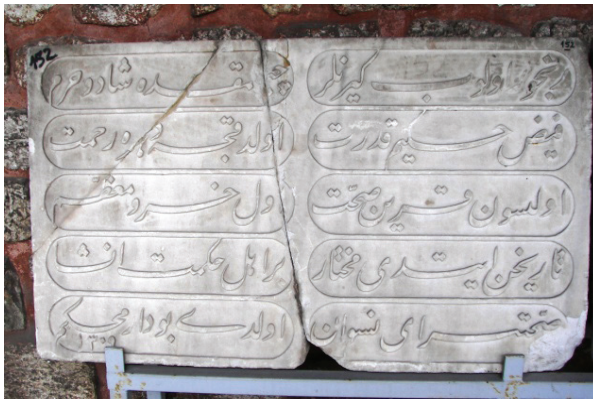 152
152
رنجور اولوب كيرنلر
چيقمقده شاد و خرم
فيض حكيم قدرت
اولدقجه دهره رحمت
اولسون قرين صحت
اول خسرو معظم
تاريخن ايتدى مختار
بر اهل حكمت انشا
خسته سراى نسوان
اولدى بو دار محكم